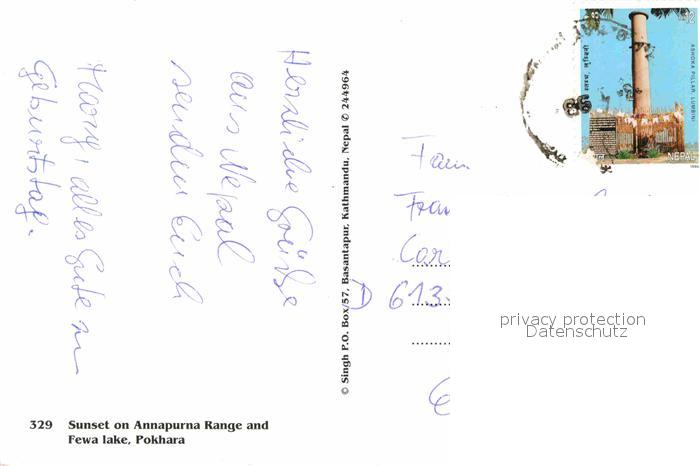 Herzliche Grüße
aus Nepal
senden Euch
alles Gute zu
Geburtstag.
329 Sunset on Annapurna Range and
Fewa lake, Pokhara
© Singh P.O. Box/57, Basantapur, Kathmandu, Nepal © 244964
Fam
Fra
Cor
D 613
G
privacy protection
Datenschutz
ASHOKA PILLAR, LUMBINI
NEPAL